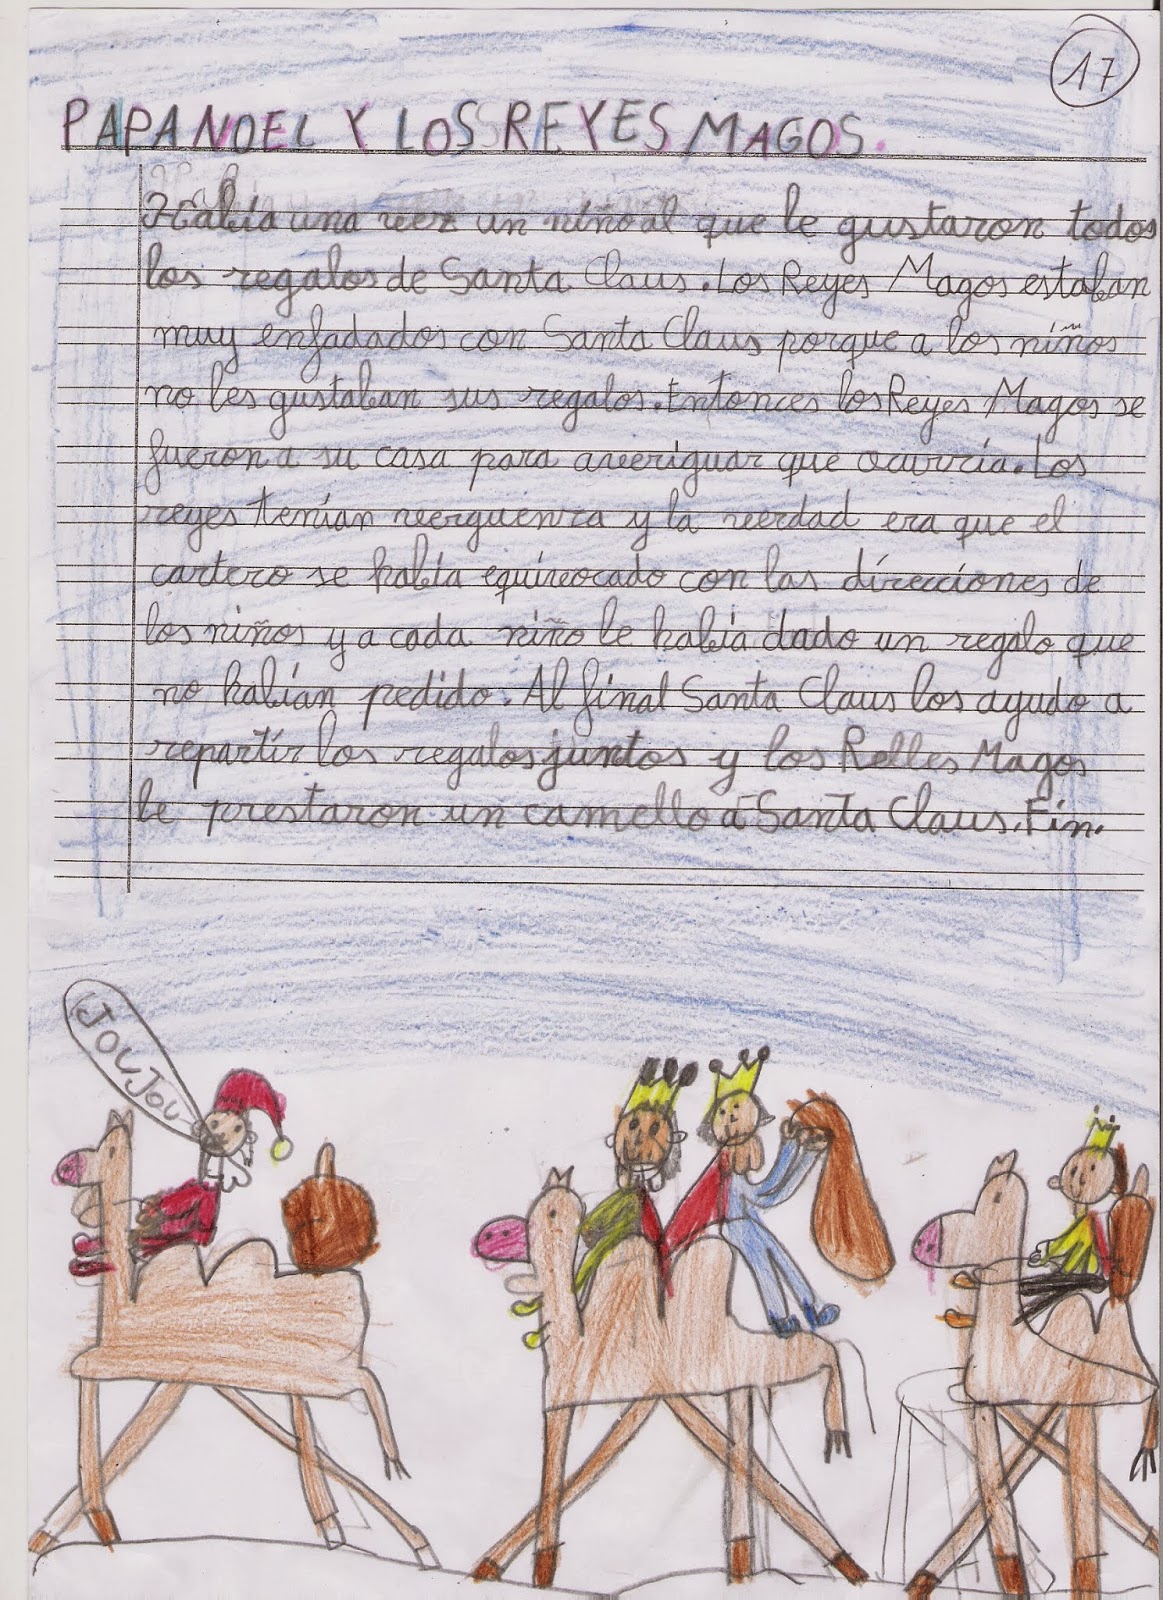 17
PAPA NOEL Y LOS REYES MAGOS.
Había una vez un niño al que le gustaron todos
los regalos de Santa Claus. Los Reyes Magos estaban
muy enfadados con Santa Claus porque a los niños
no les gustaban sus regalos. Entonces los Reyes Magos se
fueron a su casa para averiguar que ocurría. Los
reyes tenían verguenza y la verdad era que el
cartero se había equivocado con las direcciones de
los niños y a cada niño le había dado un regalo que
no habían pedido. Al final Santa Claus los ayudo a
repartir los regalos juntos y los Relles Magos
le prestaron un camello a Santa Claus. Fin.
JOU JOU